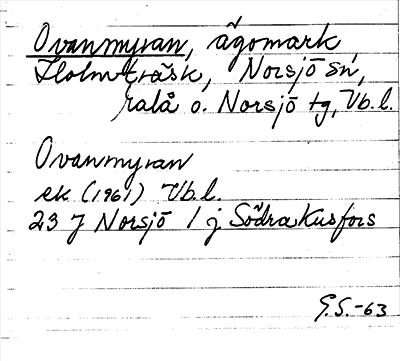 Ovanmyran, ägomark,
Holmträsk, Norsjö sn,
Malå o. Norsjö tg, Vb.l.
Ovanmyran
ek (1961) Vb.l.
23 J Norsjö 1 j Södra Kusfors
G.S.-63